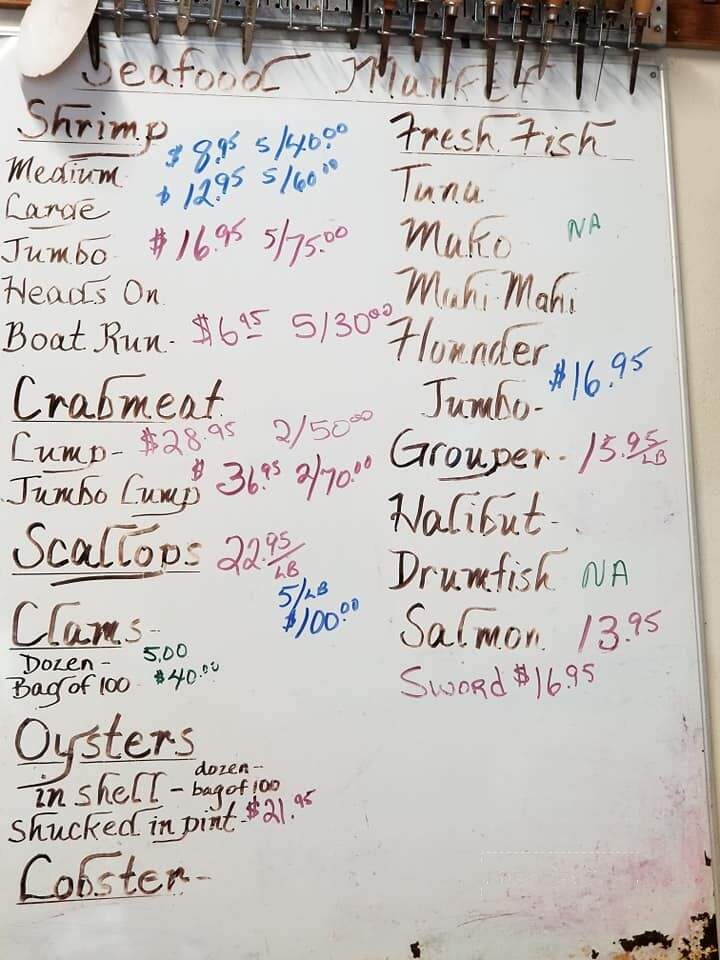 Seafood Market
Shrimp
Medium $8.95 5/40.00
Large $12.95 5/60.00
Jumbo $16.95 5/75.00
Heads On
Boat Run- $6.95 5/30.00
Crabmeat
Lump- $28.95 2/50.00
Jumbo Lump $36.95 2/70.00
Scallops 22.95/LB
5/LB
$100.00
Clams-
Dozen- 5.00
Bag of 100 $40.00
Oysters
in shell- dozen--
bag of 100
shucked in pint- $21.95
Lobster-
Fresh Fish
Tuna
Mako NA
Mahi Mahi
Flounder
Jumbo- $16.95
Grouper- 15.95/LB
Halibut-
Drumfish NA
Salmon 13.95
Sword $16.95